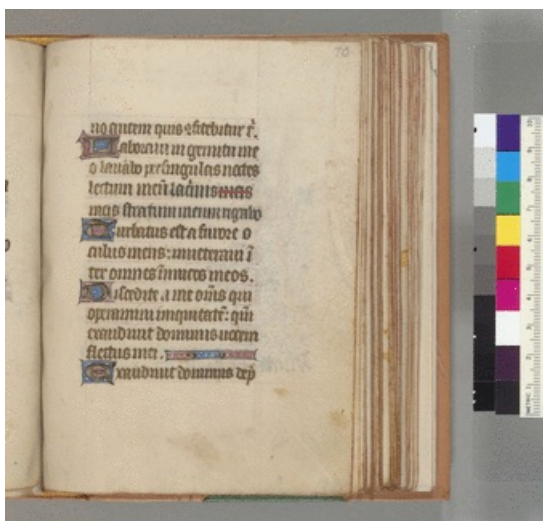 70
no autem quis cōfitebitur t̄.
Laboraui in gemitu me
o lauabo per singulas noctes
lectum meū lacrimis meis
meis stratum meum rigabo
Turbatus est a furore o
culus meus: inueteraui ī
ter omnes īnimicos meos.
Discedite a me oēs qui
operamini iniquitatē: qm̄
exaudiuit dominus uocem
fletus mei.
Exaudiuit dominus dep̄